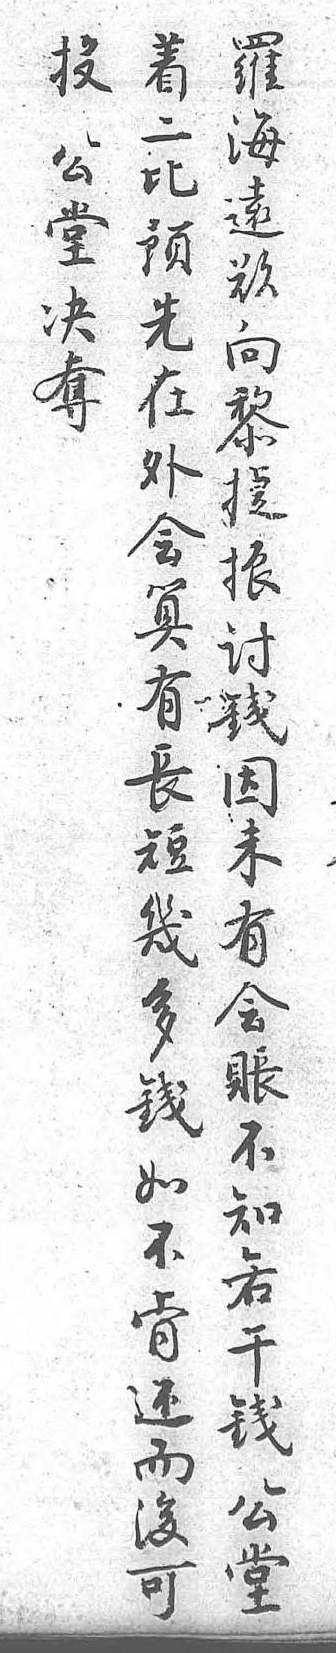 羅海遠欵向黎捷振討錢因未有会賬不知若干錢公堂
着二比預先在外会算有長短幾多錢如不肯还而後可
投公堂决奪